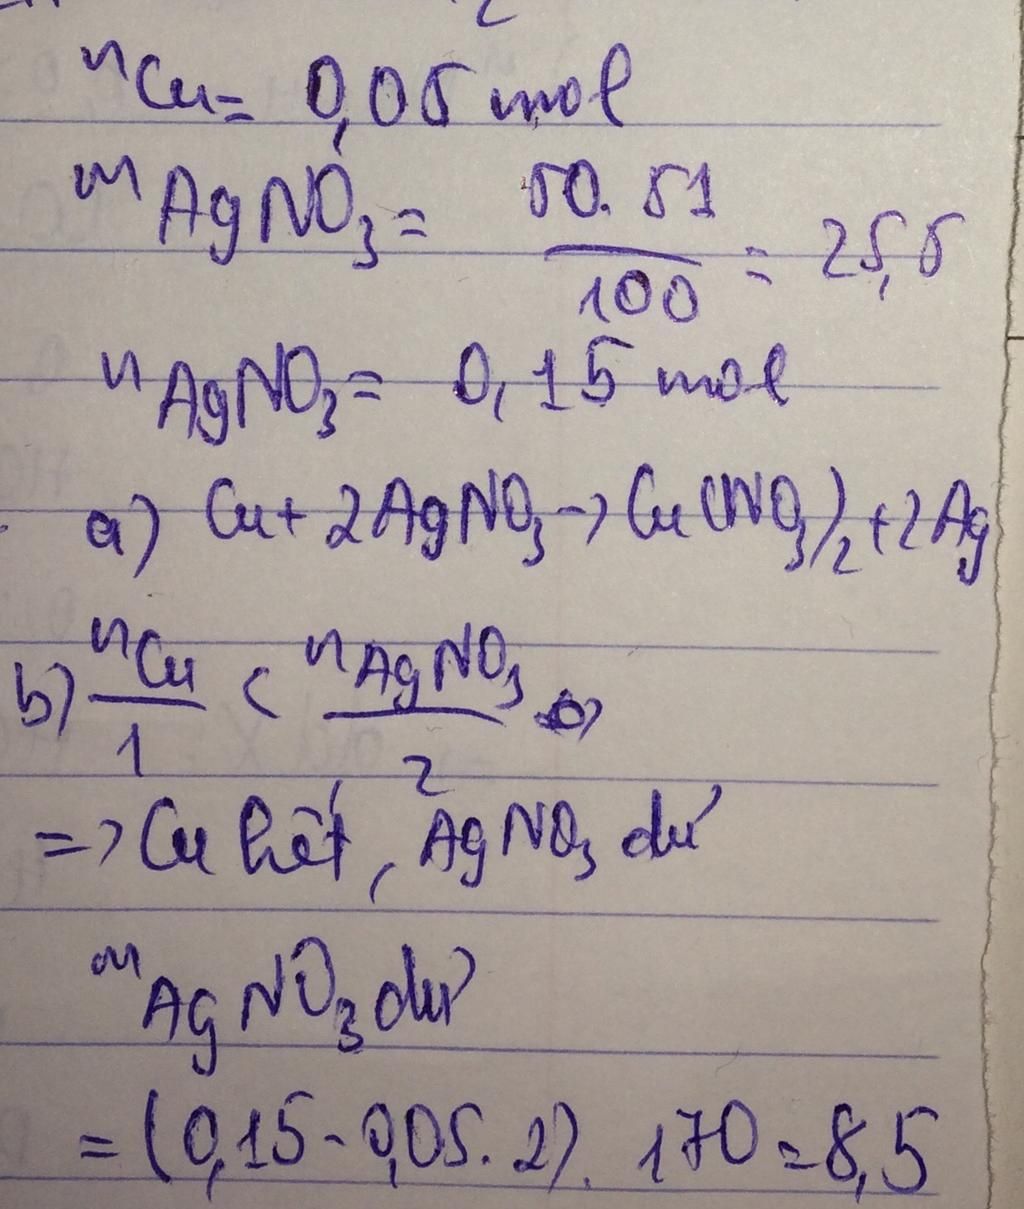 nCu = 0,05 mol
mAgNO3 = 50.51/100 = 25,5
nAgNO3 = 0,15 mol
a) Cu + 2AgNO3 -> Cu(NO3)2 + 2Ag
b) nCu/1 < nAgNO3/2
=> Cu hết, AgNO3 dư
mAgNO3 dư
= (0,15 - 0,05.2). 170 = 8,5